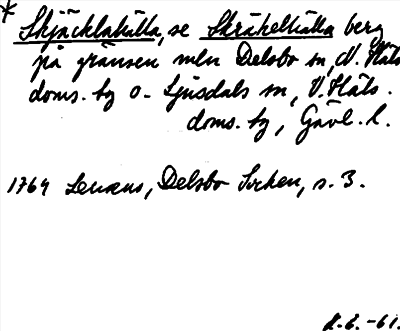 * Skjäcklahälla, se Skräkelhälla berg
på gränsen mln Delsbo sn, N. Häls.
doms. sg o. Ljusdals sn, V. Häls.
doms. sg, Gävl. l.
1764 Lenæus, Delsbo Socken, s. 3.
-61.